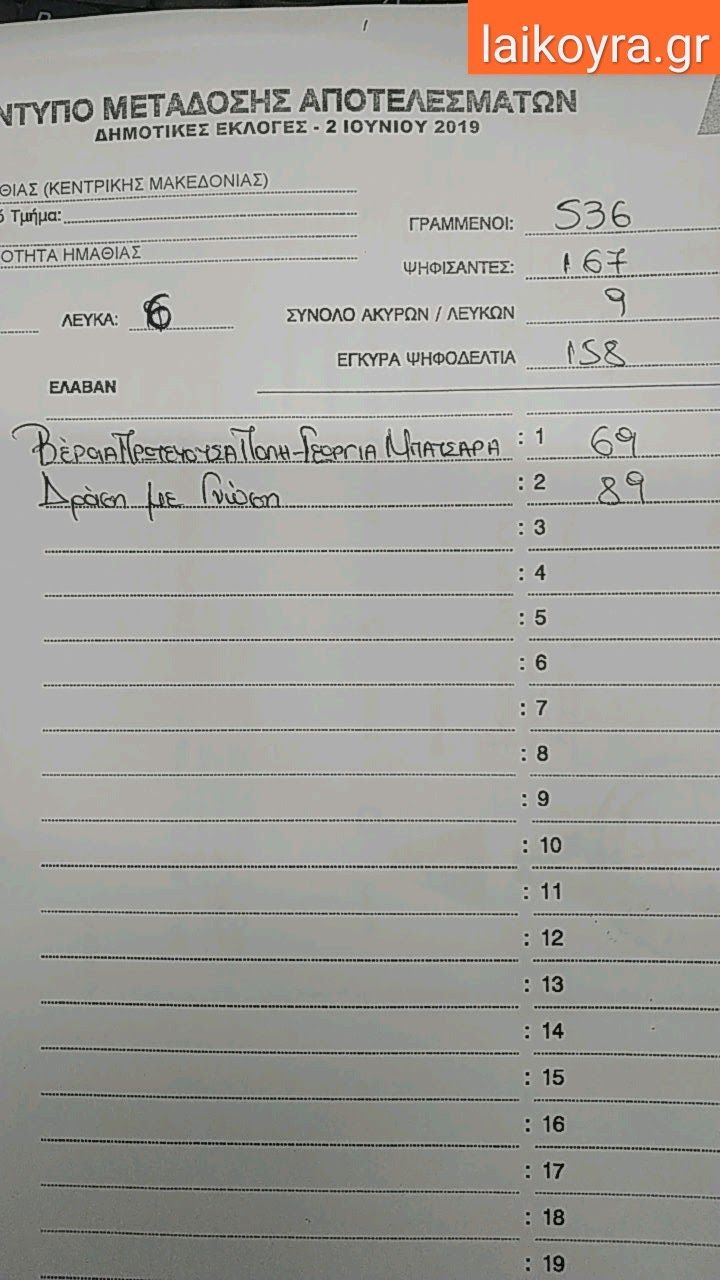 laikoyra.gr
ΝΤΥΠΟ ΜΕΤΑΔΟΣΗΣ ΑΠΟΤΕΛΕΣΜΑΤΩΝ
ΔΗΜΟΤΙΚΕΣ ΕΚΛΟΓΕΣ - 2 ΙΟΥΝΙΟΥ 2019
ΘΙΑΣ (ΚΕΝΤΡΙΚΗΣ ΜΑΚΕΔΟΝΙΑΣ)
ό Τμήμα:
ΓΡΑΜΜΕΝΟΙ: 536
ΟΤΗΤΑ ΗΜΑΘΙΑΣ
ΨΗΦΙΣΑΝΤΕΣ: 167
ΛΕΥΚΑ: 6
ΣΥΝΟΛΟ ΑΚΥΡΩΝ / ΛΕΥΚΩΝ 9
ΕΓΚΥΡΑ ΨΗΦΟΔΕΛΤΙΑ 158
ΕΛΑΒΑΝ
ΒέροιαΠρωτεύουσαΠόλη-Γεωργία Μπατσαρά : 1 69
Δράση με Γνώση : 2 89
: 3
: 4
: 5
: 6
: 7
: 8
: 9
: 10
: 11
: 12
: 13
: 14
: 15
: 16
: 17
: 18
: 19